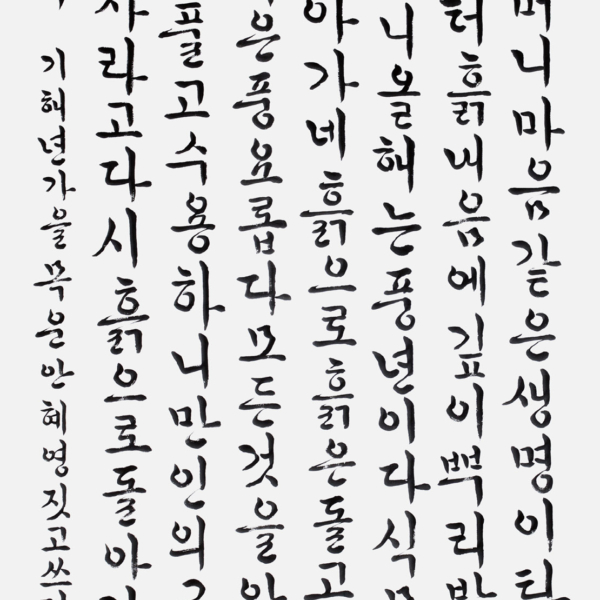 머니마음같은생명이
터흙내음에깊이뿌리박
니올해는풍년이다식
아가네흙으로흙은돌고
은풍요롭다모든것을안
풀고수용하니만인의
자라고다시흙으로돌아
기해년가을목운안혜영짓고쓰다